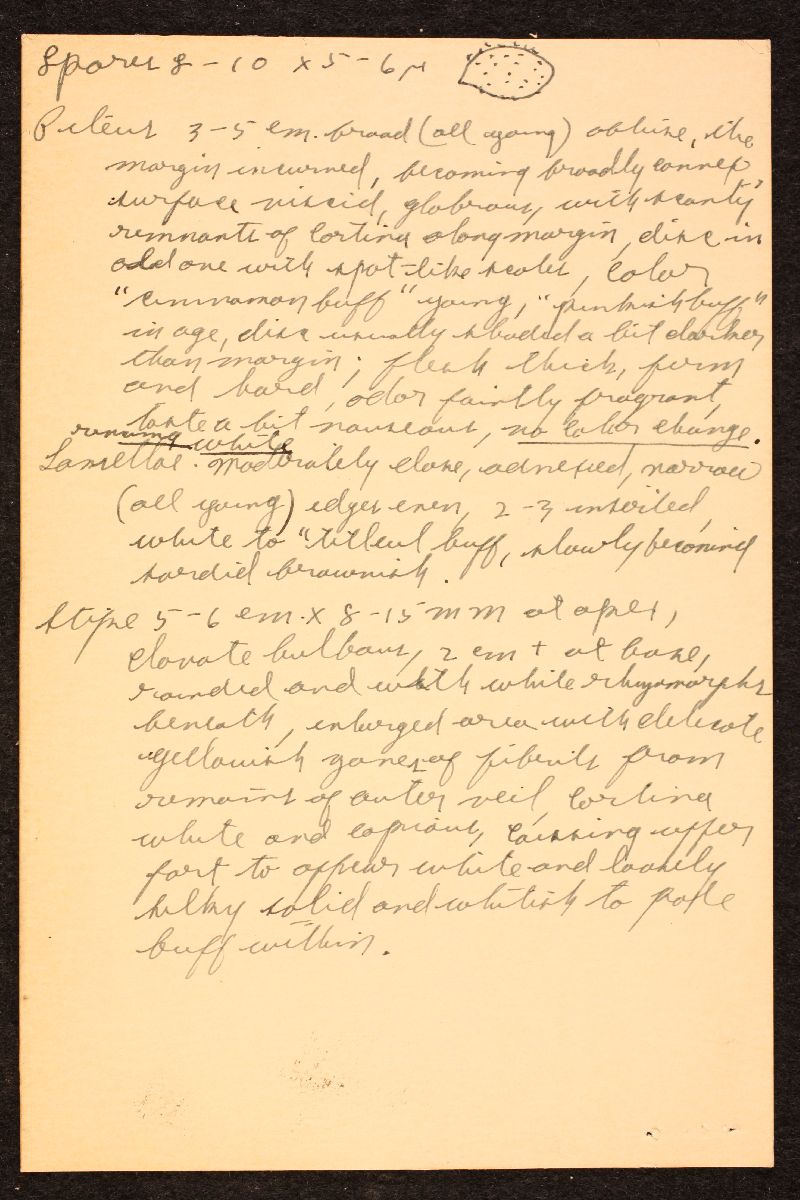 Spores 8-10 x 5-6µ
Pileus 3-5 cm. broad (all young) obtuse, the
margin incurved, becoming broadly convex,
surface viscid, glabrous, with scanty
remnants of cortina along margin, disc in
old one with spot-like scales, color
"cinnamon buff" young, "pinkish buff"
in age, disc usually shaded a bit darker
than margin; flesh thick, firm
and hard, odor faintly fragrant,
taste a bit nauseous, no color change.
running white
Lamellae: moderately close, adnexed, narrow
(all young) edges even, 2-3 inserted,
white to "tilleul buff, slowly becoming
sordid brownish.
Stipe 5-6 cm. x 8-15 mm at apex,
clavate bulbous, 2 cm + at base,
rounded and with white rhizomorphs
beneath, enlarged area with delicate
yellowish zones of fibrils from
remains of outer veil, cortina
white and copious, causing upper
part to appear white and loosely
silky solid and whitish to pale
buff within.